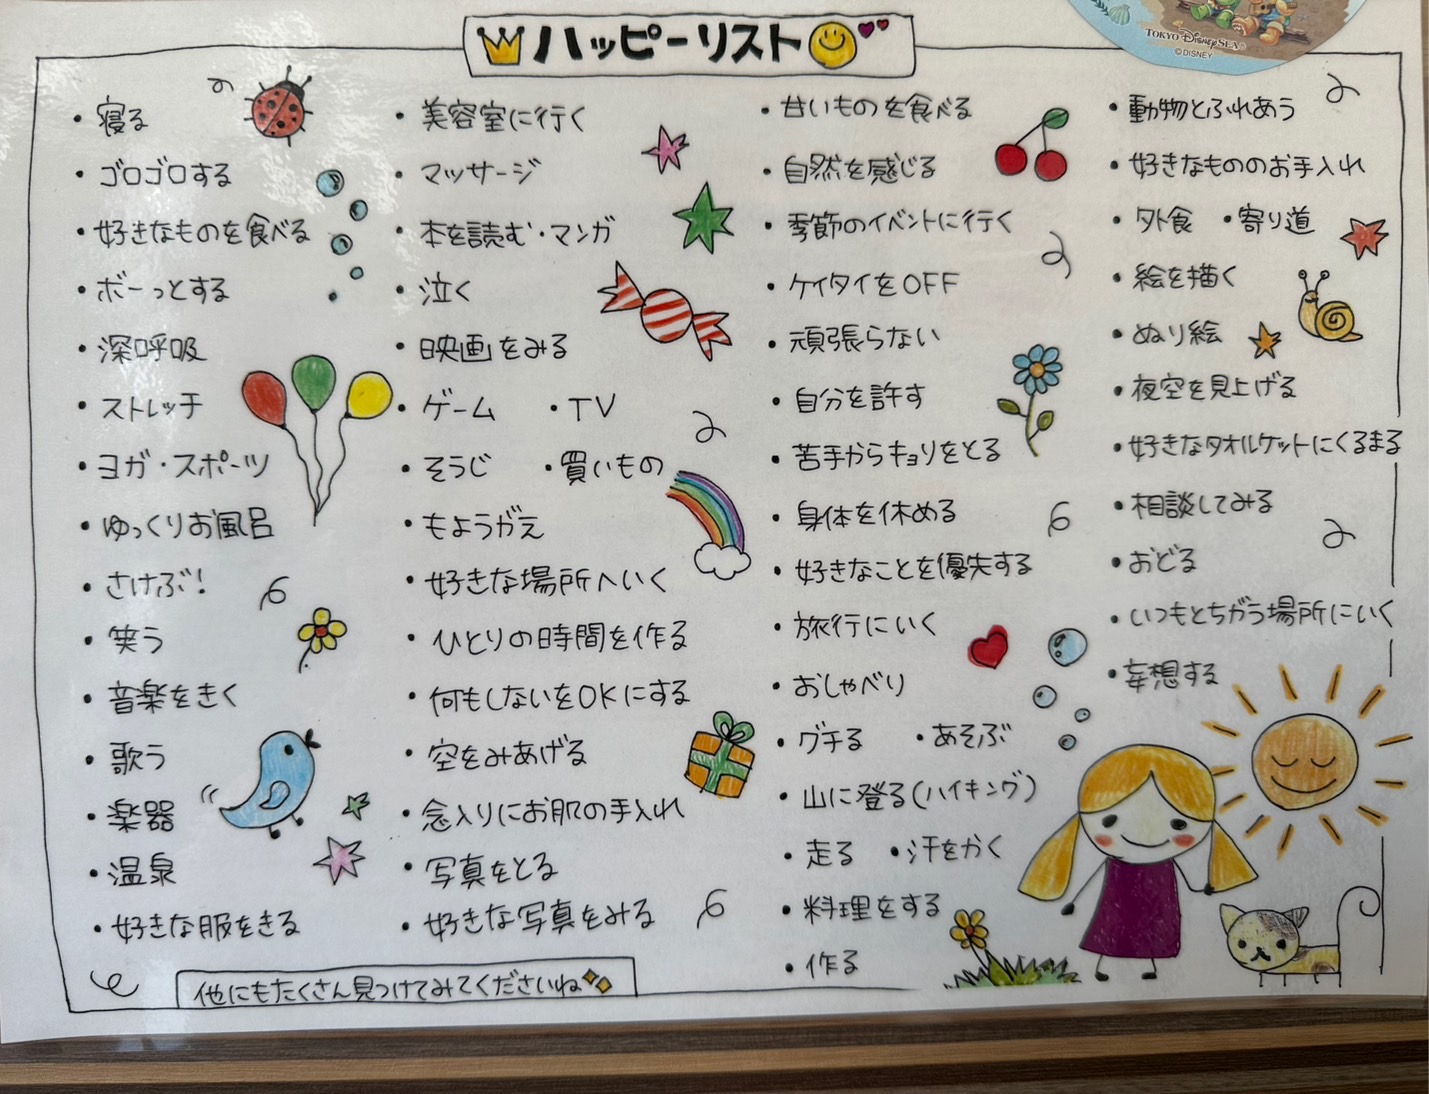 ハッピーリスト
TOKYO DisneySEA®
©DISNEY
・寝る
・ゴロゴロする
・好きなものを食べる
・ボーっとする
・深呼吸
・ストレッチ
・ヨガ・スポーツ
・ゆっくりお風呂
・さけぶ!
・笑う
・音楽をきく
・歌う
・楽器
・温泉
・好きな服をきる
・美容室に行く
・マッサージ
・本を読む・マンガ
・泣く
・映画をみる
・ゲーム ・TV
・そうじ ・買いもの
・もようがえ
・好きな場所へいく
・ひとりの時間を作る
・何もしないをOKにする
・空をみあげる
・念入りにお肌の手入れ
・写真をとる
・好きな写真をみる
・甘いものを食べる
・自然を感じる
・季節のイベントに行く
・ケイタイをOFF
・頑張らない
・自分を許す
・苦手からキョリをとる
・身体を休める
・好きなことを優先する
・旅行にいく
・おしゃべり
・グチる ・あそぶ
・山に登る(ハイキング)
・走る ・汗をかく
・料理をする
・作る
・動物とふれあう
・好きなもののお手入れ
・外食 ・寄り道
・絵を描く
・ぬり絵
・夜空を見上げる
・好きなタオルケットにくるまる
・相談してみる
・おどる
・いつもとちがう場所にいく
・妄想する
他にもたくさん見つけてみてくださいね